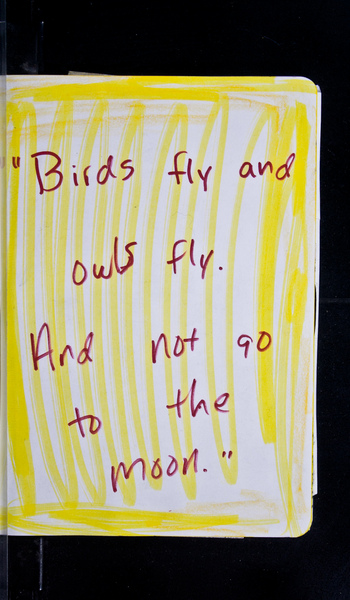 "Birds fly and
owls fly.
And not go
to the
moon."